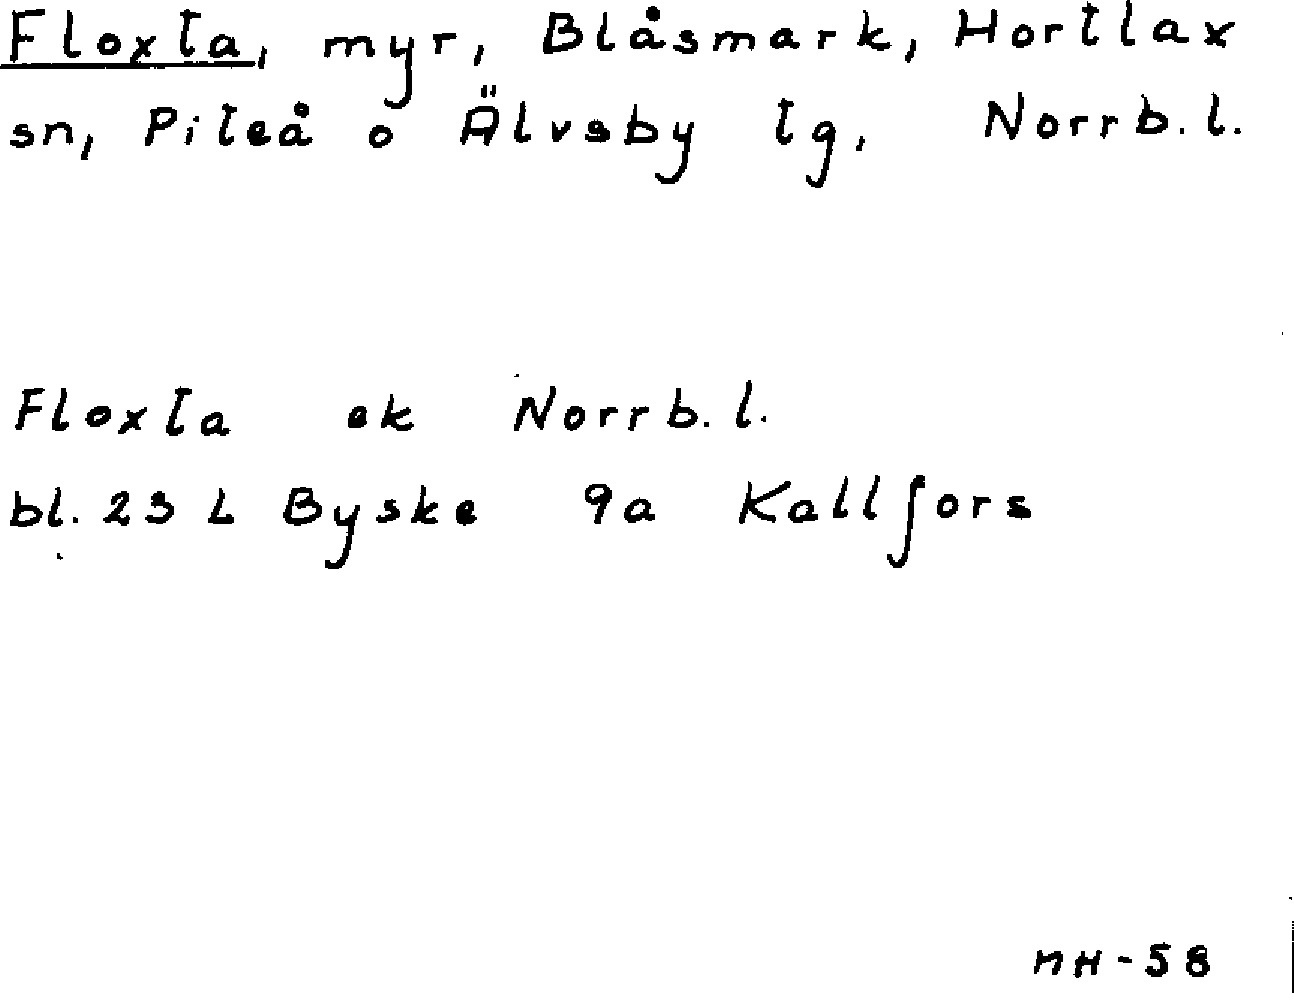 Floxta, myr, Blåsmark, Hortlax
sn, Piteå o Älvsby tg, Norrb. l.
Floxta ek Norrb. l.
bl. 23 L Byske 9a Kallfors
MH-58